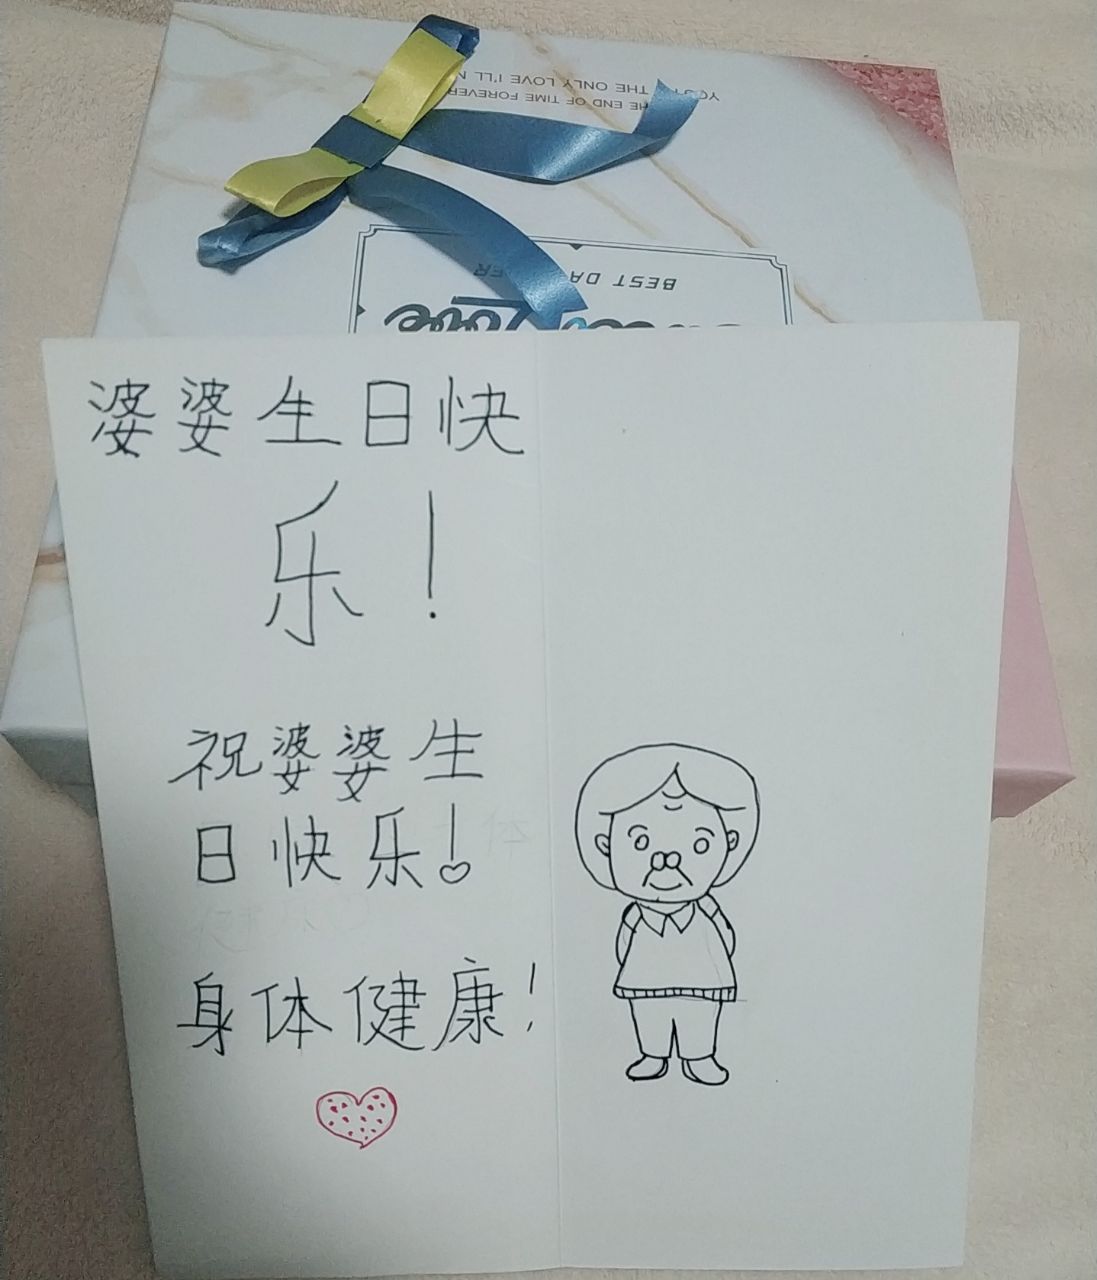 YOU'RE THE ONLY LOVE I'LL
THE END OF TIME FOREVER
BEST DA
Love
婆婆生日快
乐！
祝婆婆生
日快乐！
身体健康！